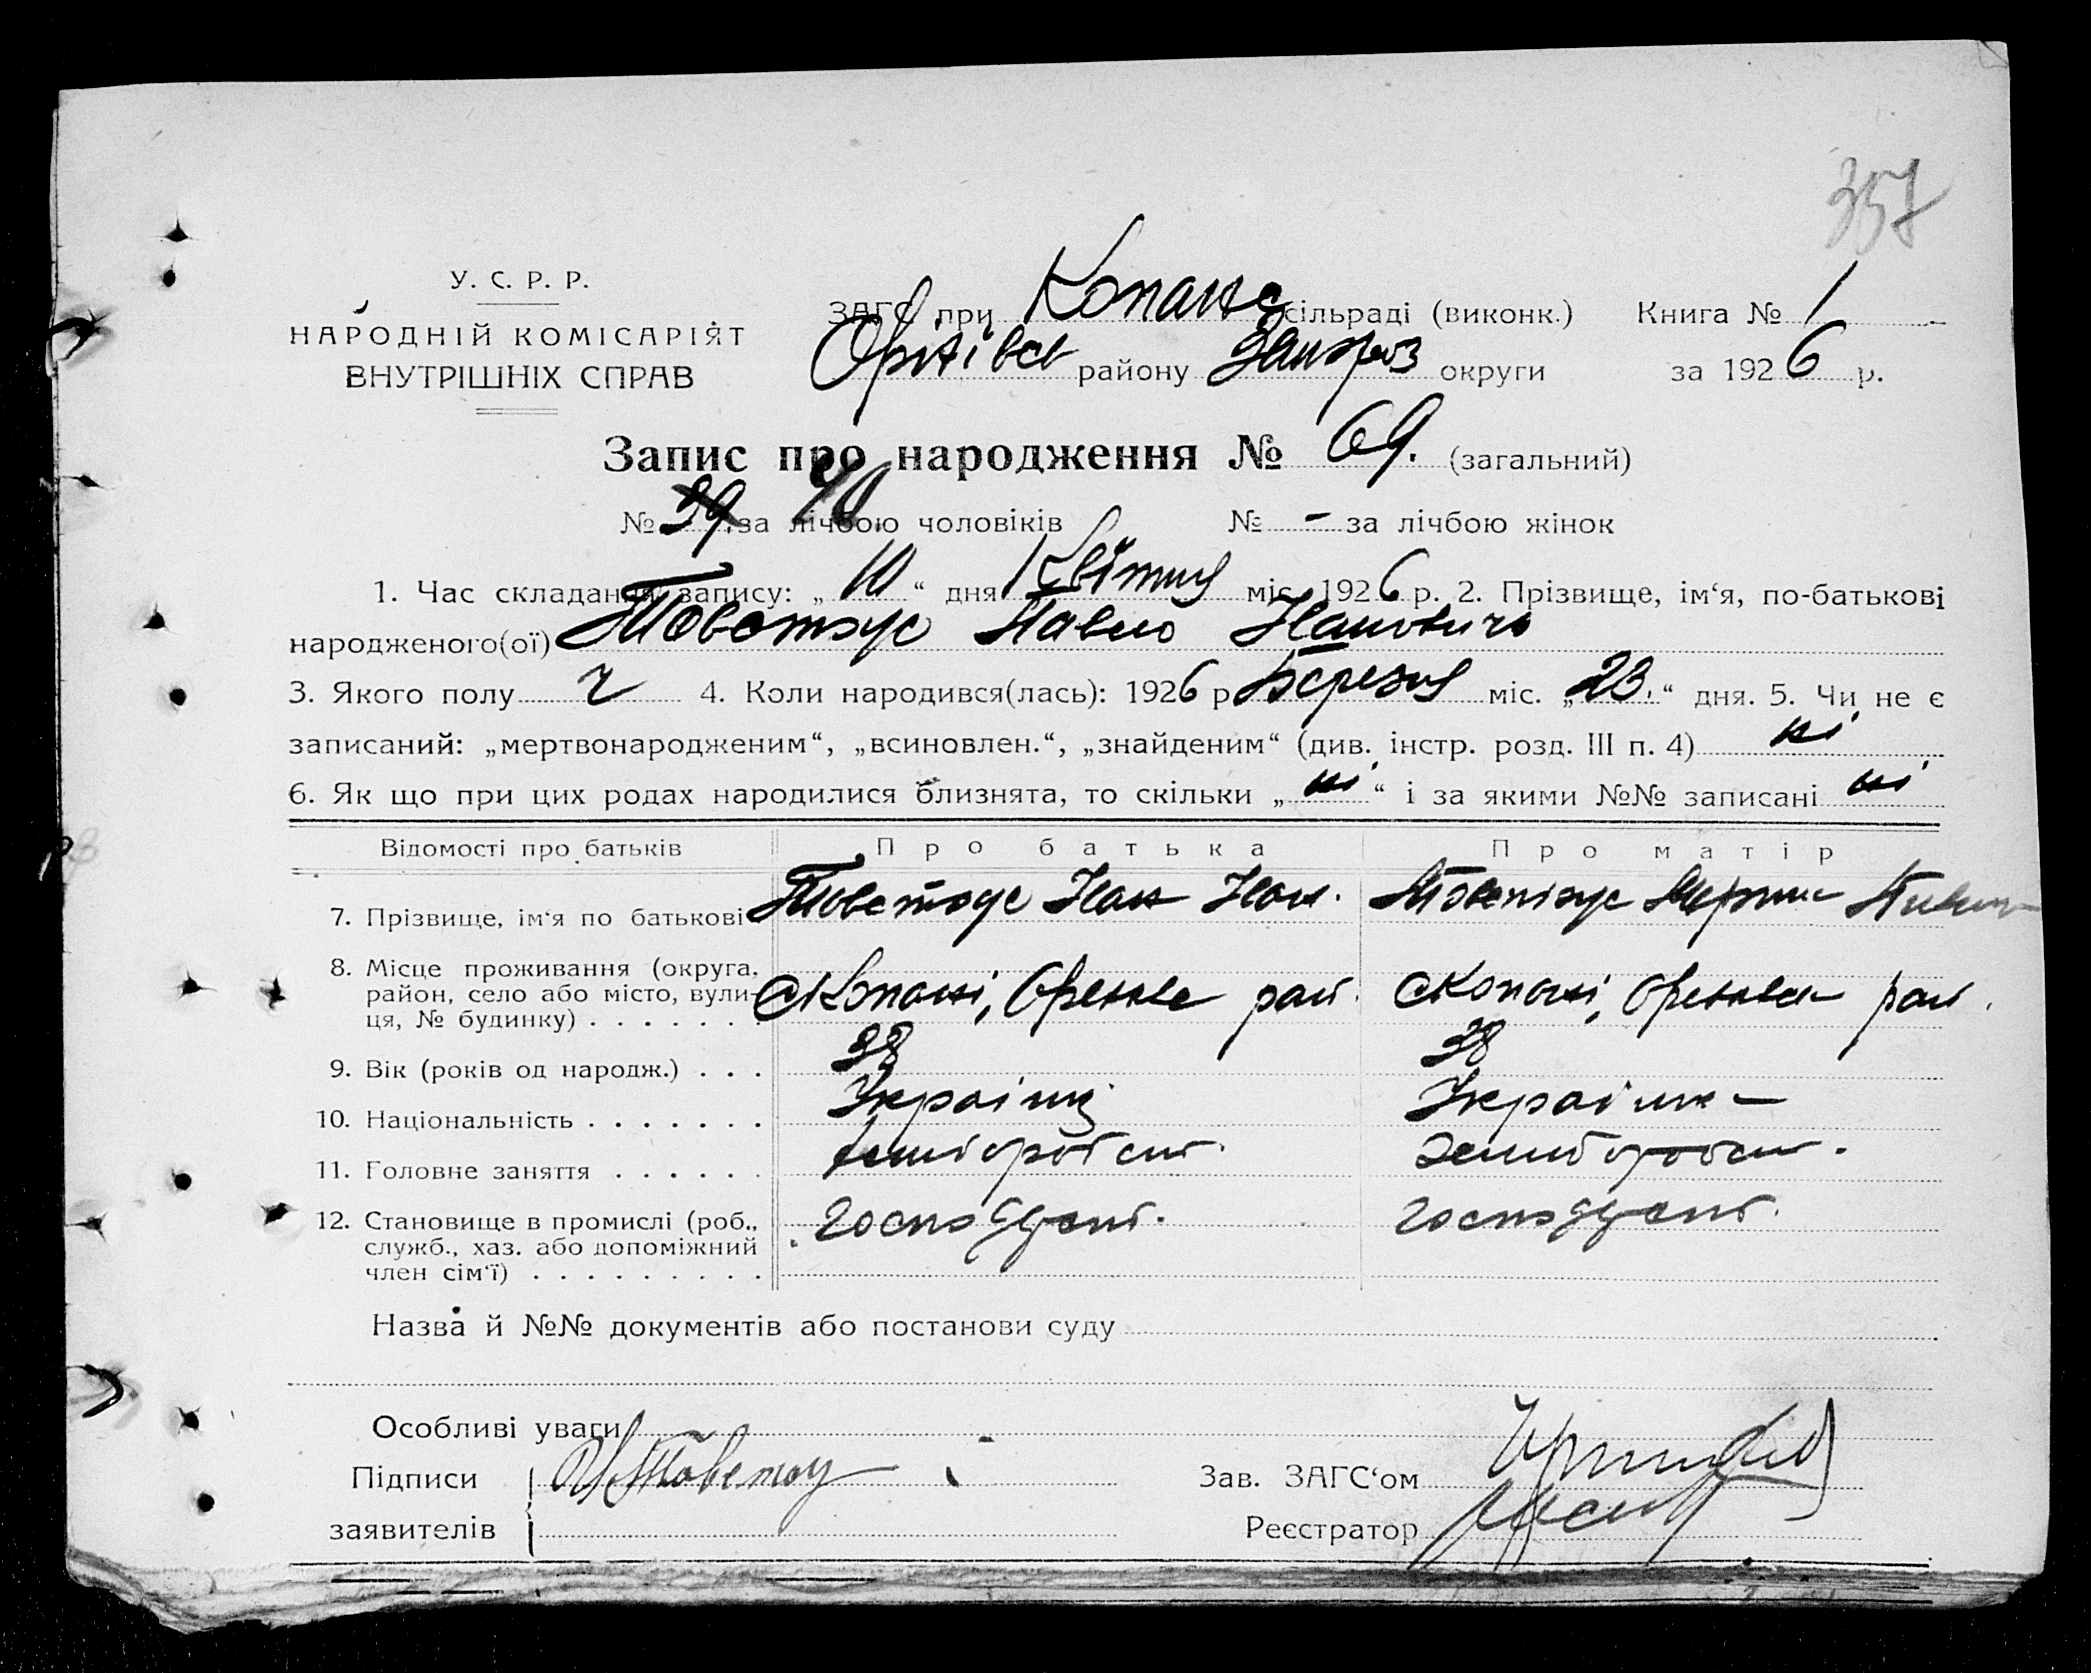 357
У. С. Р. Р.
НАРОДНІЙ КОМІСАРІЯТ
ВНУТРІШНІХ СПРАВ
ЗАГС при Копанс сільраді (виконк.) Книга № 1
Оріхівсь району Запороз округи за 1926 р.
Запис про народження № 69. (загальний)
№ 39 40 за лічбою чоловіків № - за лічбою жінок
1. Час складання запису: „10“ дня Квітня міс. 1926 р. 2. Прізвище, ім‘я, по-батькові
народженого(ої) Товстоус Павло Іванович
3. Якого полу ч 4. Коли народився(лась): 1926 р Березня міс. „23.“ дня. 5. Чи не є
записаний: „мертвонародженим“, „всиновлен.“, „знайденим“ (див. інстр. розд. III п. 4) ні
6. Як що при цих родах народилися близнята, то скільки „ні“ і за якими №№ записані ні
Відомості про батьків Про батька Про матір
7. Прізвище, ім‘я по батькові Товстоус Іван Іван. Товстоус
8. Місце проживання (округа, район, село або місто, вулиця, № будинку) . . . . . . с Копані, Оріхівс рай. с Копані, Оріхівсь рай.
9. Вік (років од народж.) . . . 38 38
10. Національність . . . . . . . Українц Українка
11. Головне заняття . . . . . .
12. Становище в промислі (роб., служб., хаз. або допоміжний член сім‘ї) . . . . . . . . .
Назва й №№ документів або постанови суду
Особливі уваги -
Підписи Товстоу Зав. ЗАГС‘ом
заявителів Реєстратор